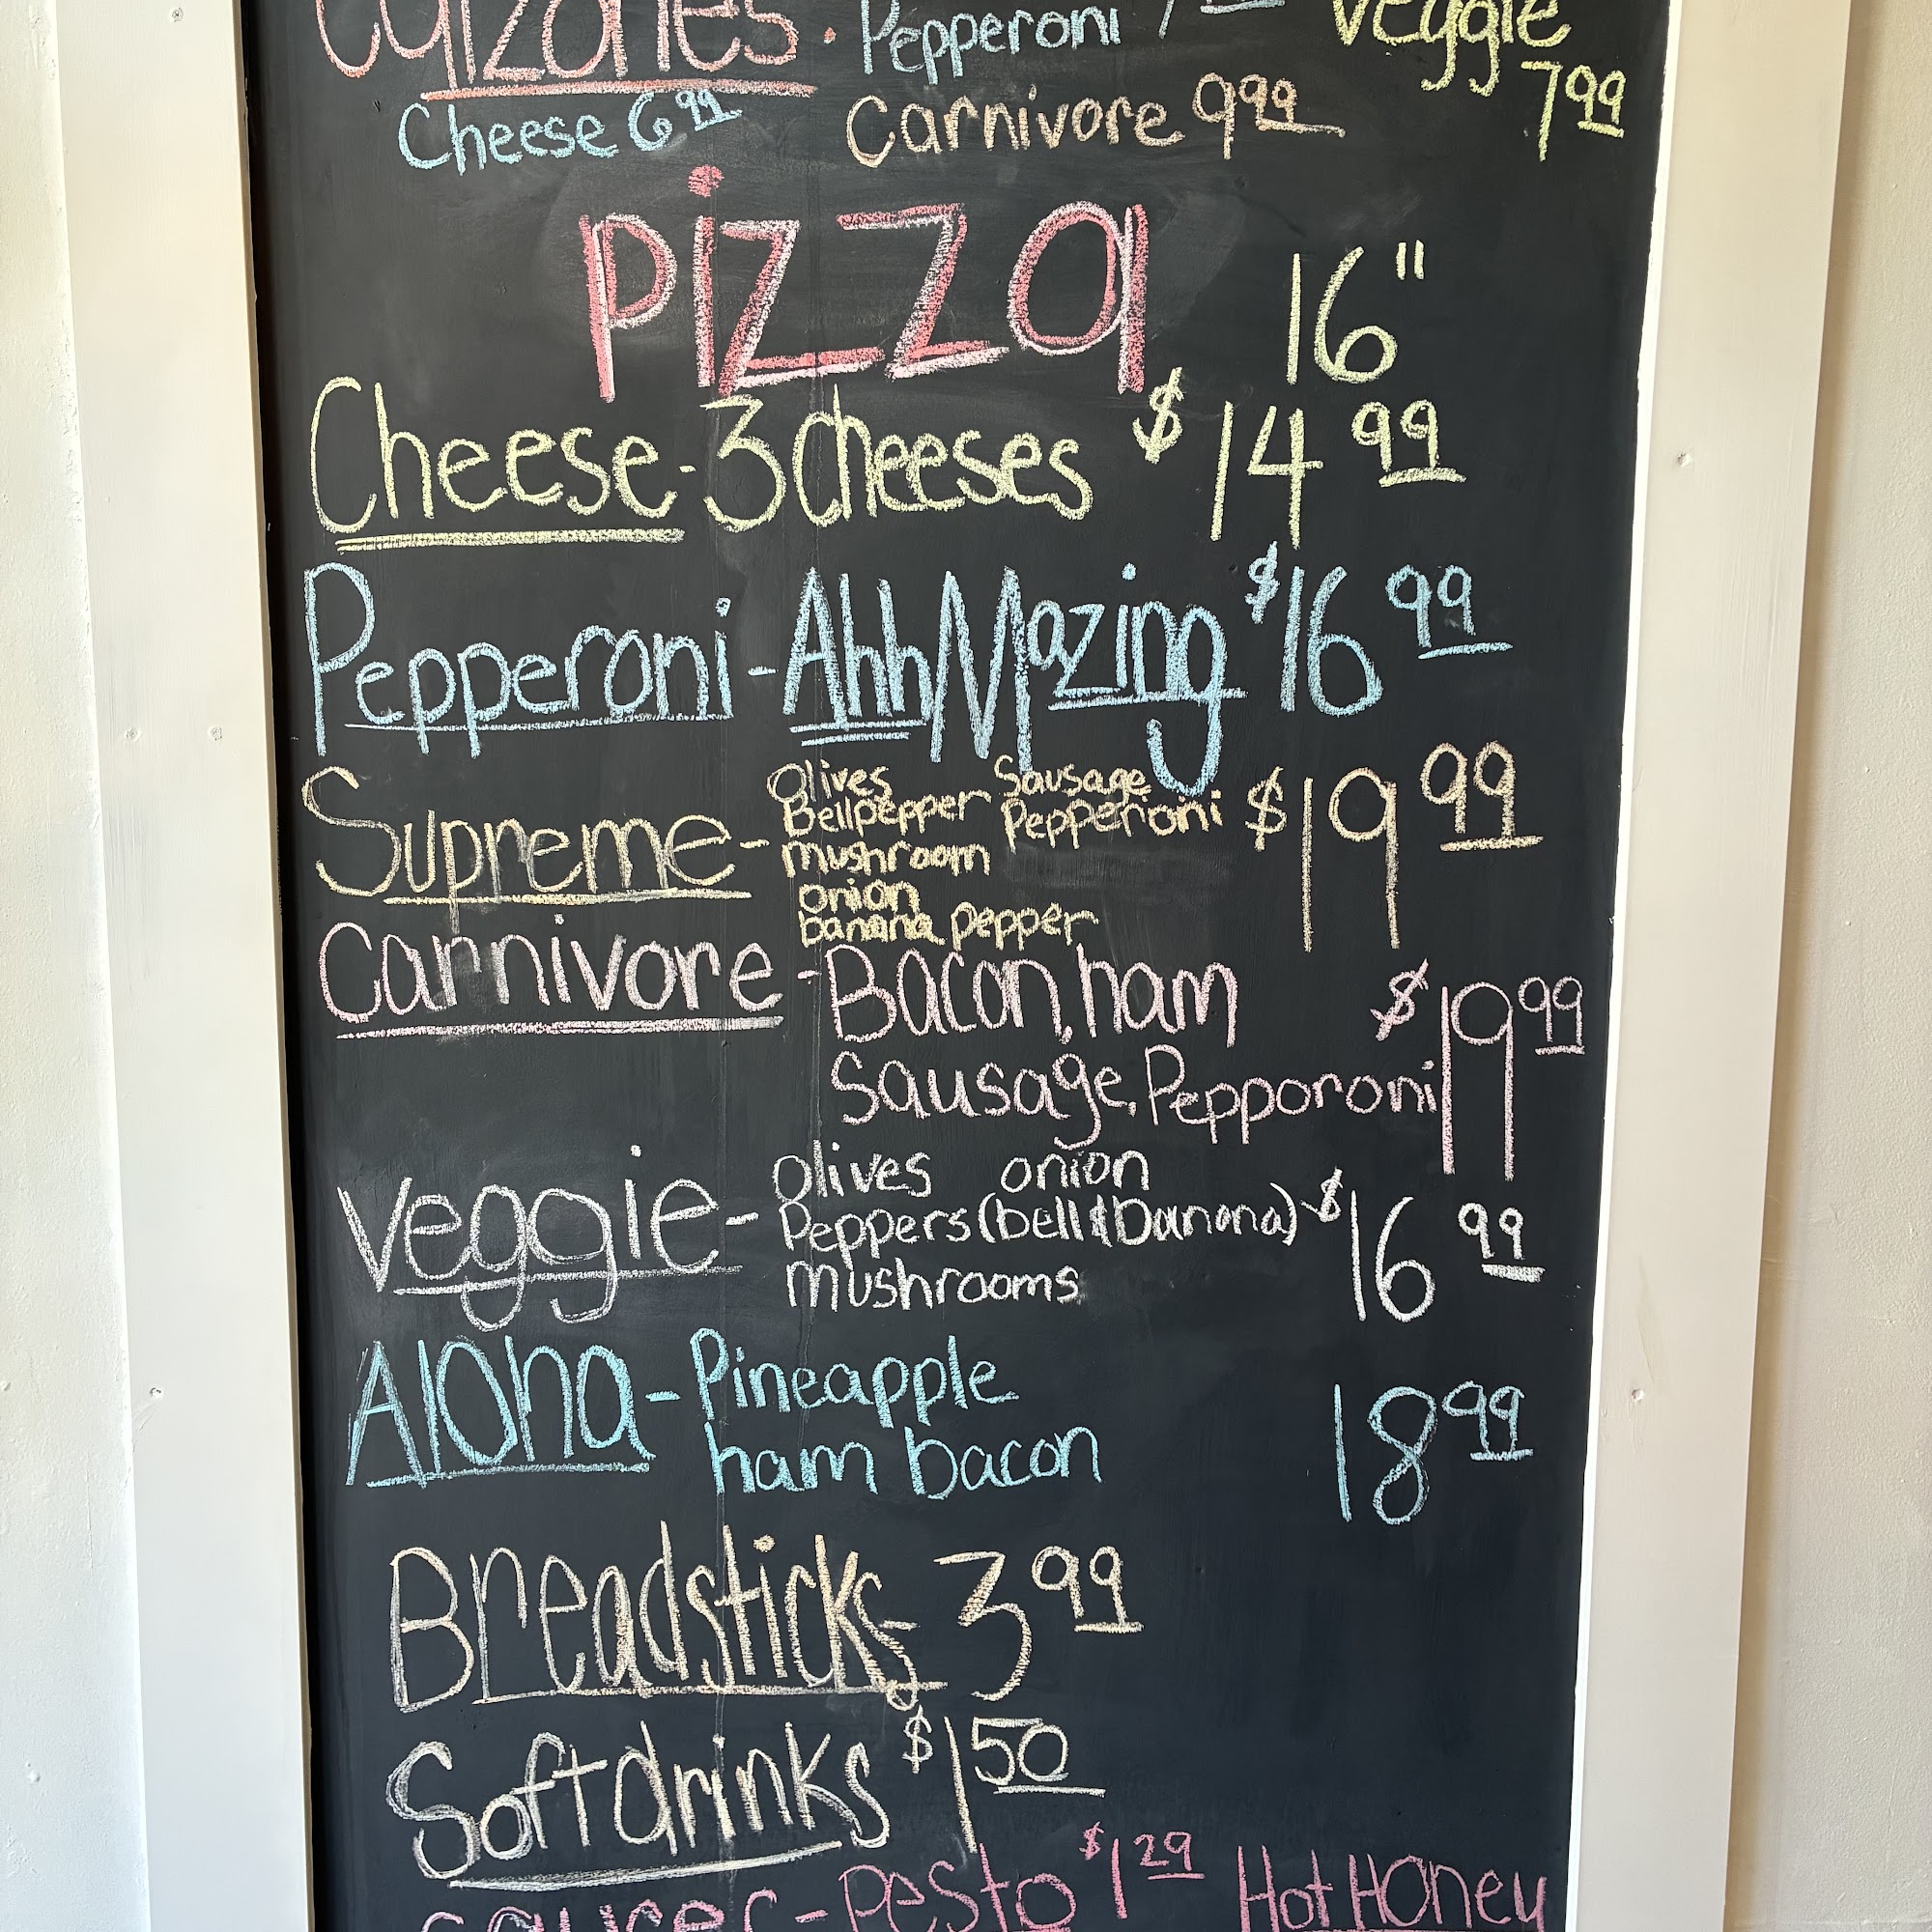 Calzones. Pepperoni 7 Veggie
Cheese 6 99 Carnivore 9 99 7 99
Pizza 16"
Cheese - 3 cheeses $14 99
Pepperoni - AhhMazing $16 99
Supreme - Olives Sausage $19 99
Bellpepper Pepperioni
mushroom
onion
banana pepper
Carnivore - Bacon, ham $19 99
Sausage, Pepporoni
Veggie - Olives onion $16 99
Peppers (bell & banana)
mushrooms
Aloha - Pineapple 18 99
ham bacon
Breadsticks - 3 99
Softdrinks $1 50
Sauces - Pesto $1 29 Hot Honey